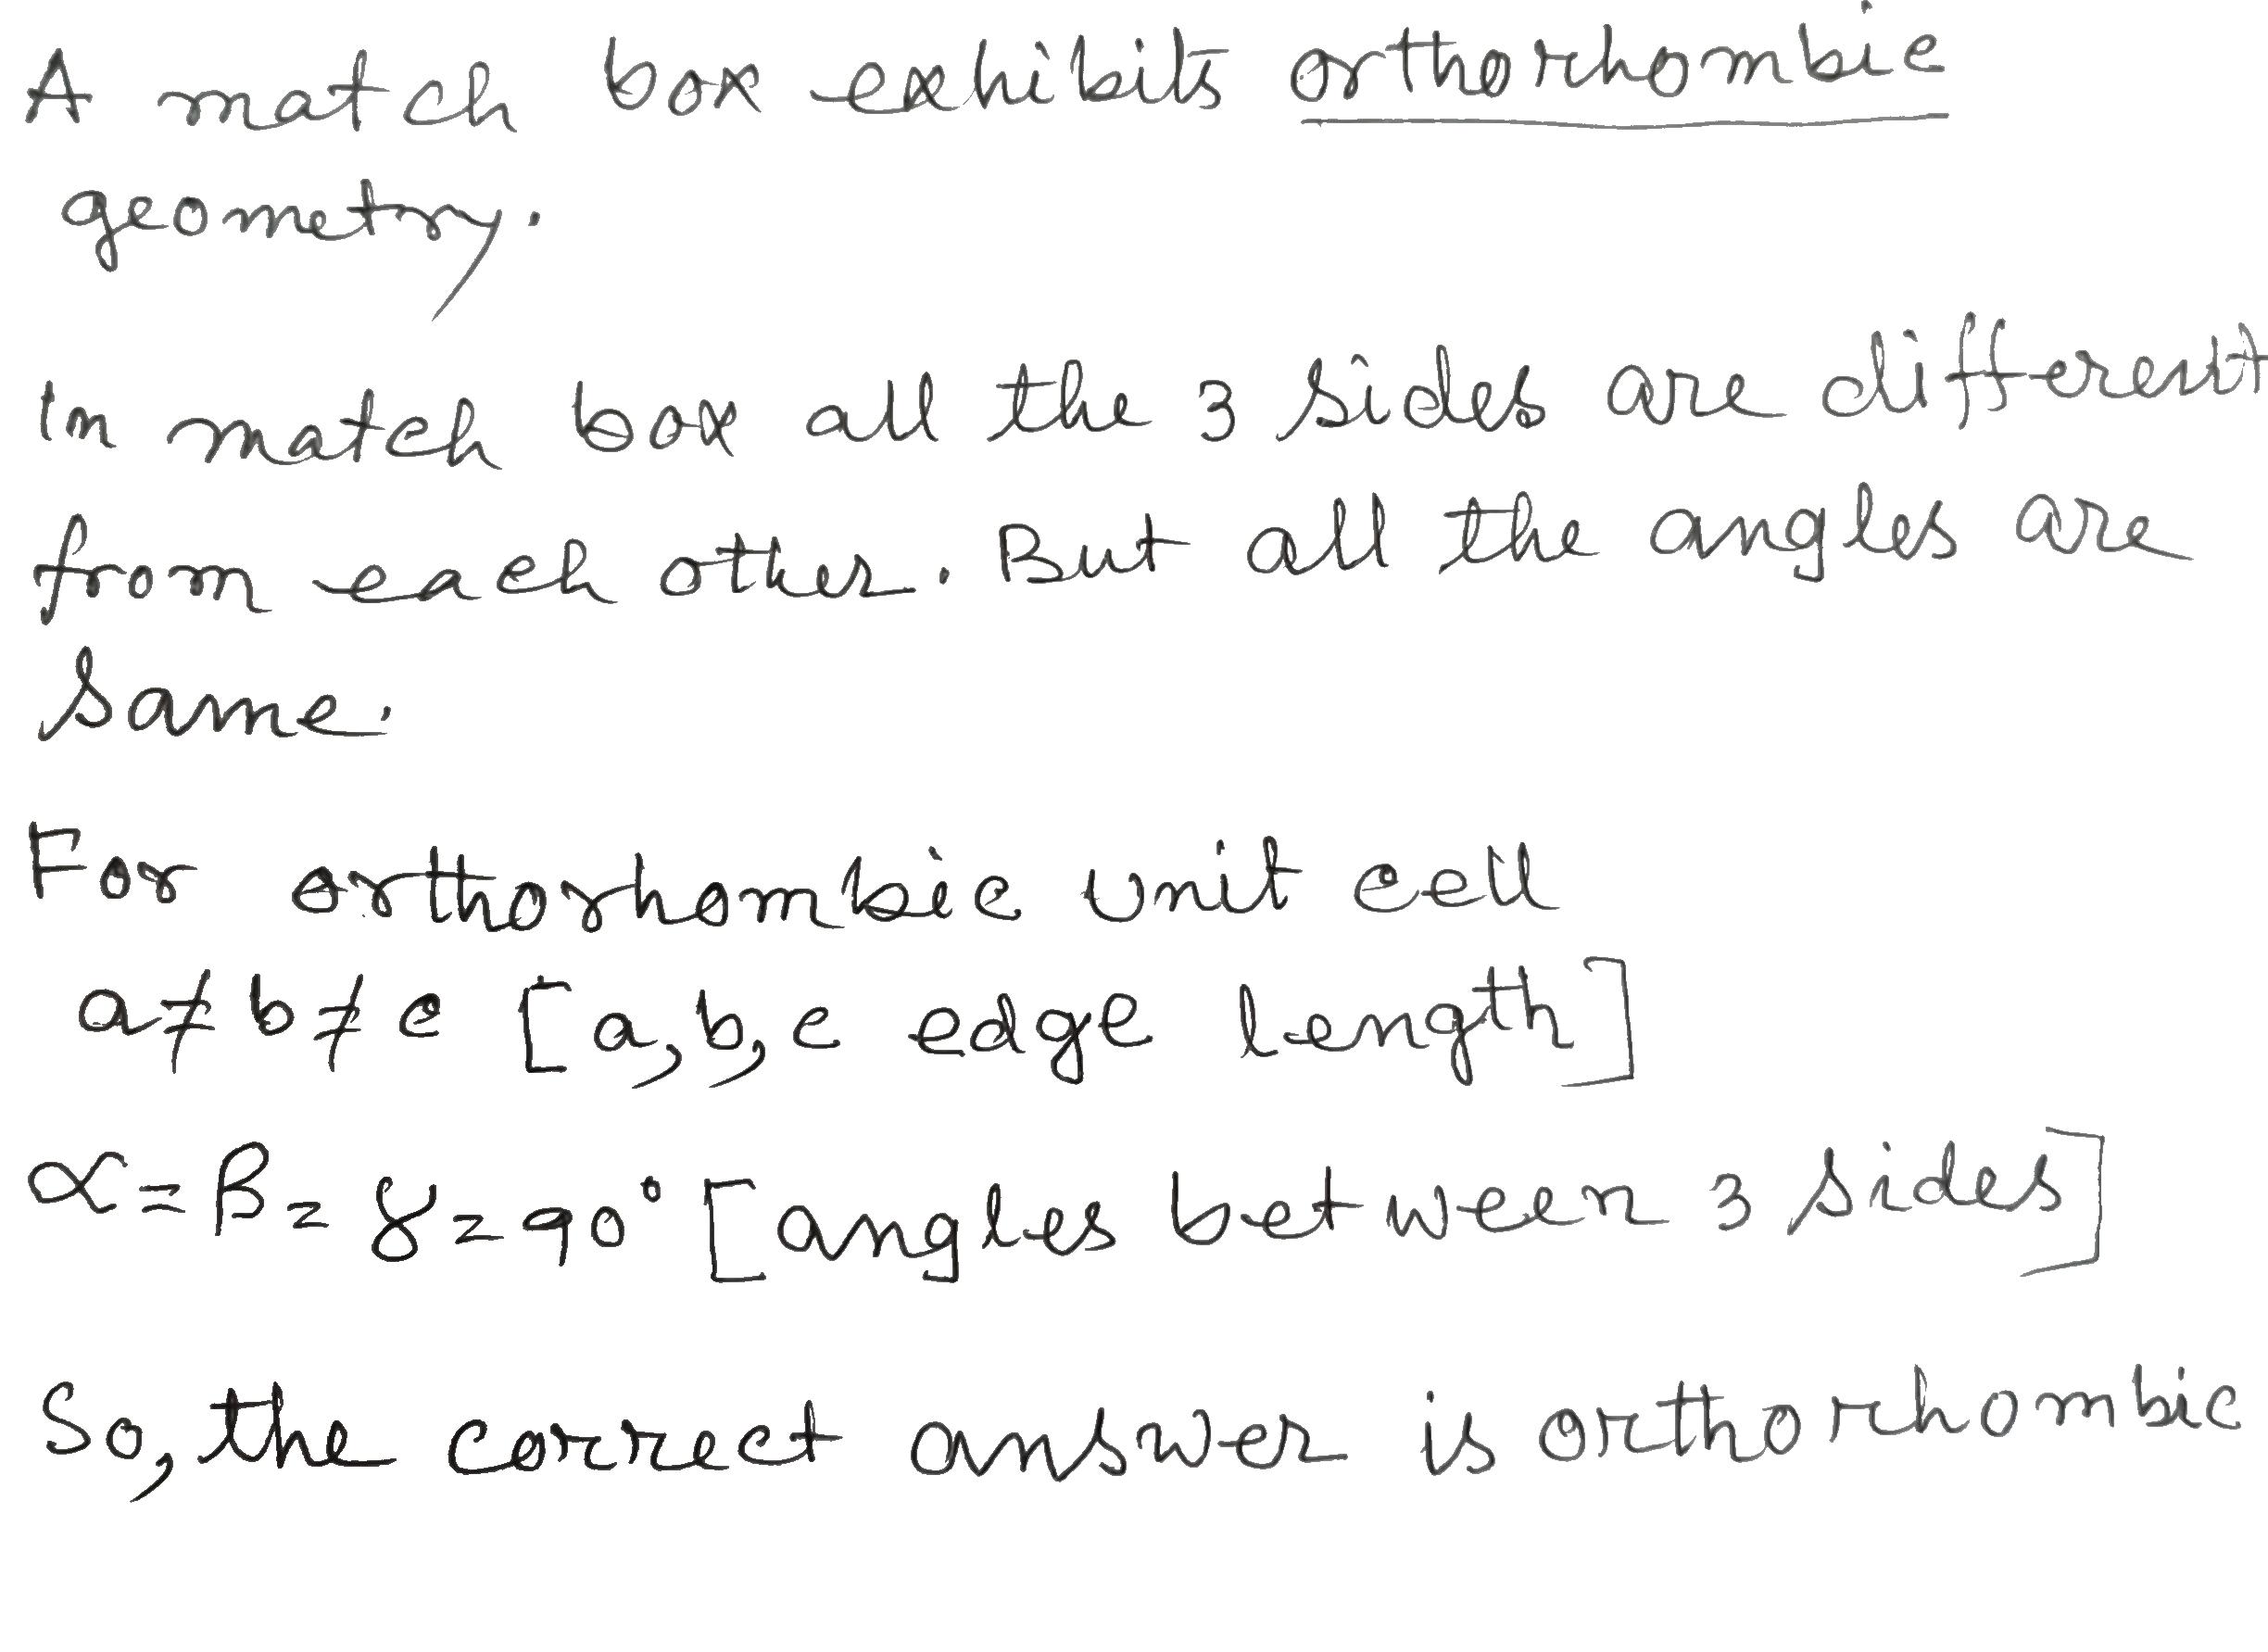 A match box exhibits orthorhombic
geometry.
In match box all the 3 sides are different
from each other. But all the angles are
same.
For orthorhombic unit cell
a≠b≠c [a,b,c edge length]
α=β=γ=90° [angles between 3 sides]
So, the correct answer is orthorhombic